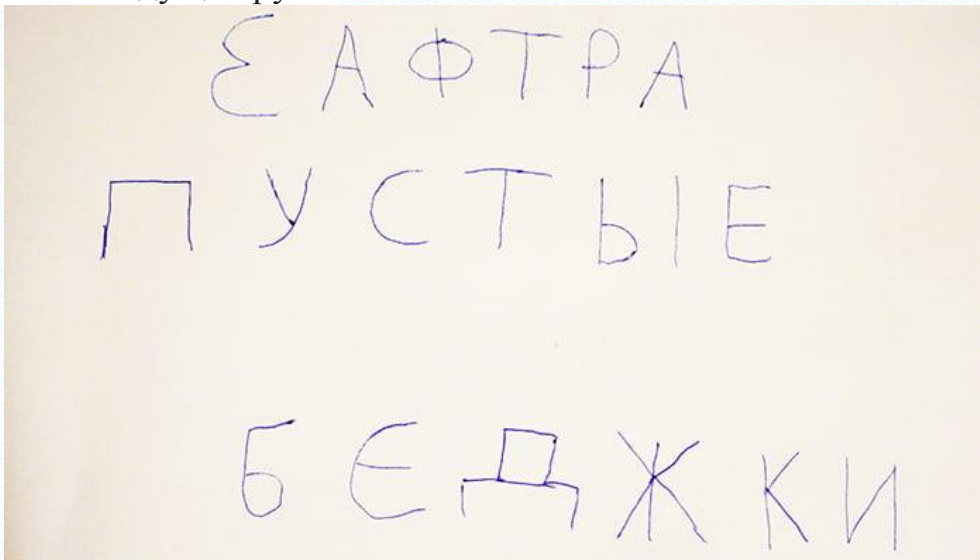 ЗАФТРА
ПУСТЫЕ
БЕДЖКИ